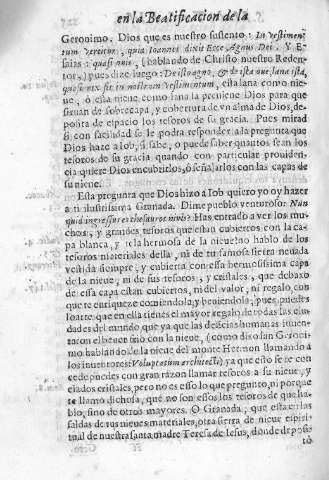 en la Beatificacion de la
Geronimo. Dios que es nuestro sustento: In vestimen
tum vertitur, quia Ioannes dixit Ecce Agnus Dei. Y E
saias quasi nix, (hablando de Christo nuestro Reden
tor,) pues dize luego: De isto agno, & de ista oue, lana ista,
quasi nix fit in nostrum vestimentum, esta lana como nie
ue, ò esta nieue como lana la preuiene Dios para que
siruan de sobrecapa, y cobertura de vn alma de Dios, de
posito de espacio los tesoros de su gracia. Pues mirad
si con facilidad se le podra responder a la pregunta que
Dios haze a Iob, si sabe, o puede saber quantos sean los
tesoros de su gracia quando con particular prouiden
cia quiere Dios encubrirlos, o señalarlos con las capas de
su nieue.
Esta pregunta que Dios hizo a Iob quiero yo oy hazer
a ti ilustrissima Granada. Dime pueblo venturoso: Nun
quid ingressus es thesauros niuis? Has entrado a ver los mu
chos, y grandes tesoros que estan cubiertos con la ca
pa blanca, y hermosa de la nieue? no hablo de los
tesoros materiales della, ni de tu famosa sierra neuada
vestida siempre, y cubierta con essa hermosissima capa
de la nieue, ni de sus tesaros, y cristales, que debaxo
de essa capa estan cubiertos, ni del valor, ni regalo, con
que te enriqueze comiendola, y beuiendola, pues puedes
loarte que en ella tienes el mayor regalo de todas las ciu
dades del mundo que ya que las delicias humanas inuen
taron el beuer frio con la nieue, (como dixo san Geroni
mo hablando de la nieue del monte Hermon llamando à
los inuentores: Voluptatum architectis) ya que esto se te con
cede puedes con gran razon llamar tesoros a su nieue, y
elados cristales, pero no es esso lo que pregunto, ni porque
te llamo dichosa, que no son essos los tesoros de que ha
blo, sino de otros mayores. O Granada, que estas en las
faldas de tus nieues materiales, otra sierra de nieue espiri
tual de nuestra santa madre Teresa de Iesus, donde deposi
tò